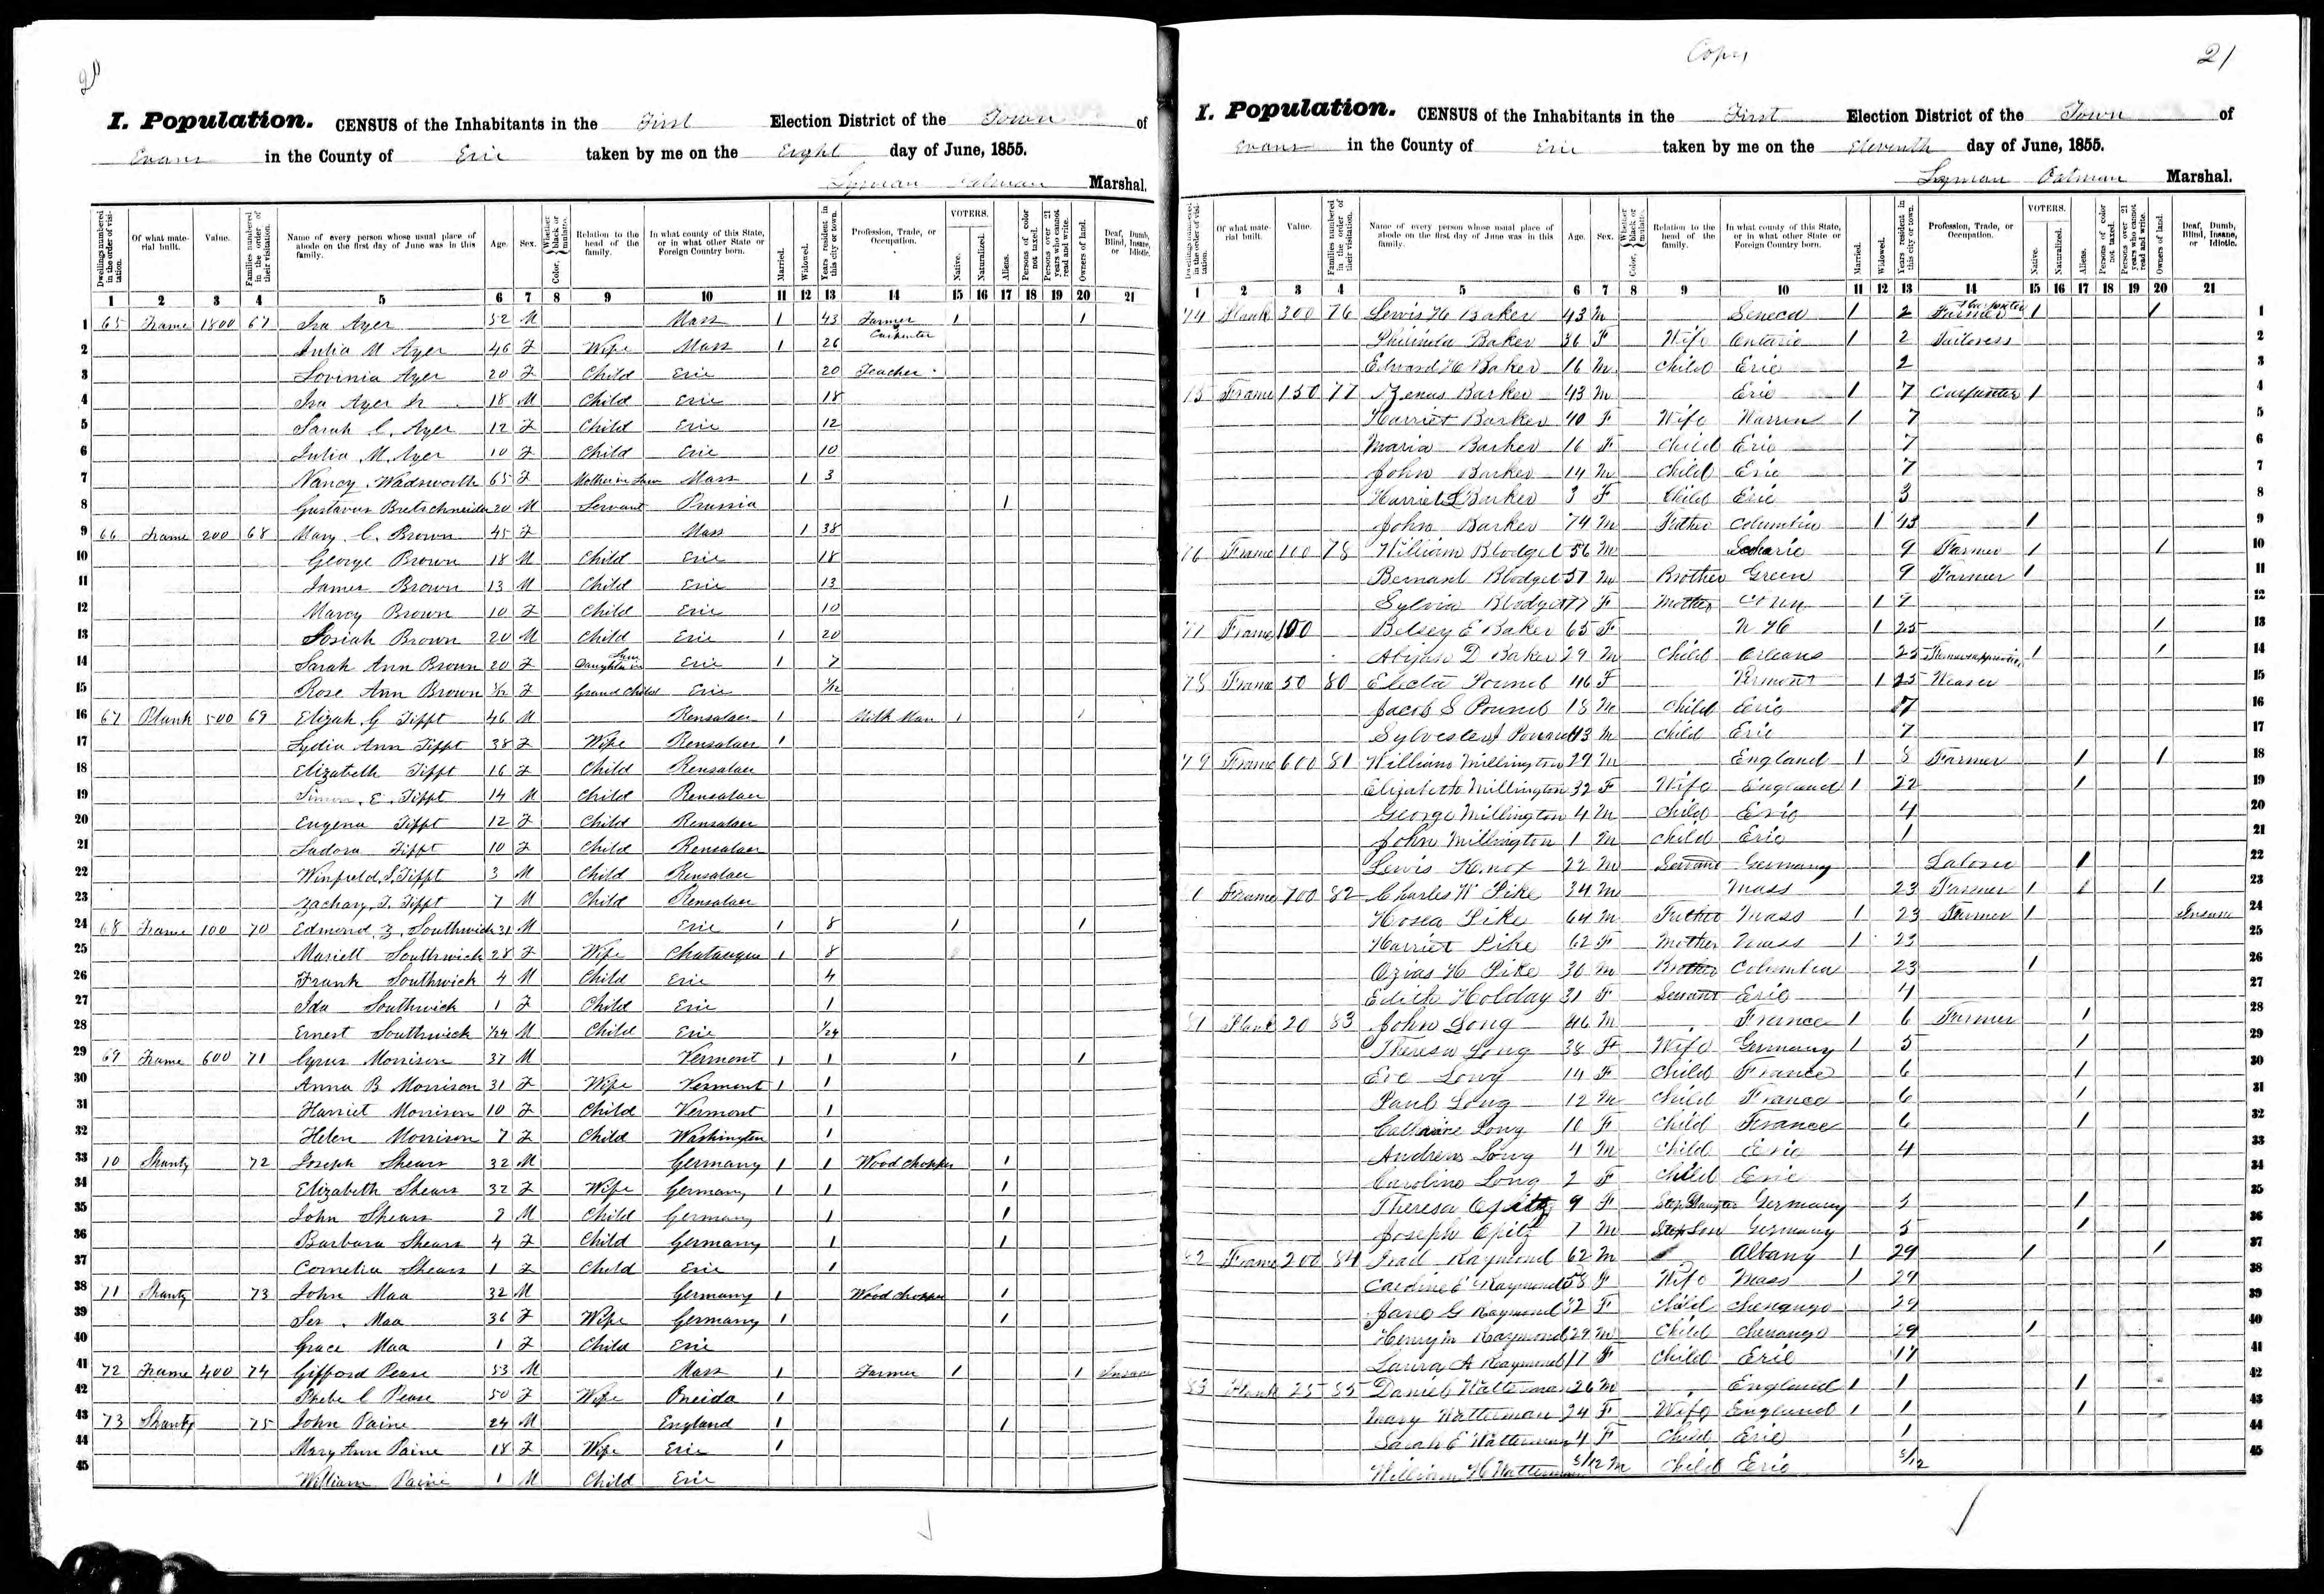 20
I. Population. CENSUS of the Inhabitants in the First Election District of the Town of
Evans in the County of Erie taken by me on the Eight day of June, 1855.
Lyman Oatman Marshal.
Dwellings numbered in the order of visitation. Of what material built. Value. Families numbered in the order of their visitation. Name of every person whose usual place of abode on the first day of June was in this family. Age. Sex. Color, Whether black or mulatto. Relation to the head of the family. In what county of this State, or in what other State or Foreign Country born. Married. Widowed. Years resident in this city or town. Profession, Trade, or Occupation. VOTERS. Native. Naturalized. Aliens. Persons of color not taxed. Persons over 21 years who cannot read and write. Owners of land. Deaf, Dumb, Blind, Insane, or Idiotic.
1 2 3 4 5 6 7 8 9 10 11 12 13 14 15 16 17 18 19 20 21
1 65 Frame 1800 67 Ira Ayer 52 M Mass 1 43 Farmer & Carpenter 1 1
2 Julia M Ayer 46 F Wife Mass 1 26
3 Lovinia Ayer 20 F Child Erie 20 Teacher
4 Ira Ayer Jr 18 M Child Erie 18
5 Sarah C. Ayer 12 F Child Erie 12
6 Julia M. Ayer 10 F Child Erie 10
7 Nancy Wadsworth 65 F Mother in Law Mass 1 3
8 Gustavus Bretschneider 20 M Servant Prussia 1
9 66 Frame 200 68 Mary C. Brown 45 F Mass 1 38
10 George Brown 18 M Child Erie 18
11 James Brown 13 M Child Erie 13
12 Marcy Brown 10 F Child Erie 10
13 Josiah Brown 20 M Child Erie 1 20
14 Sarah Ann Brown 20 F Daughter in Law Erie 1 7
15 Rose Ann Brown 1/12 F Grand Child Erie 1/12
16 67 Plank 500 69 Elizah G Tifft 46 M Rensalaer 1 Milk Man 1 1
17 Lydia Ann Tifft 38 F Wife Rensalaer 1
18 Elizabeth Tifft 16 F Child Rensalaer
19 Simon E. Tifft 14 M Child Rensalaer
20 Eugena Tifft 12 F Child Rensalaer
21 Ladora Tifft 10 F Child Rensalaer
22 Winfield S. Tifft 3 M Child Rensalaer
23 Zachary T. Tifft 7 M Child Rensalaer
24 68 Frame 100 70 Edmond Z. Southwick 31 M Erie 1 8 1 1
25 Mariett Southwick 28 F Wife Chatauque 1 8
26 Frank Southwick 4 M Child Erie 4
27 Ida Southwick 1 F Child Erie 1
28 Ernest Southwick 1/24 M Child Erie 1/24
29 69 Frame 600 71 Cyrus Morrison 37 M Vermont 1 1 1 1
30 Anna B Morrison 31 F Wife Vermont 1 1
31 Harriet Morrison 10 F Child Vermont 1
32 Helen Morrison 7 F Child Washington 1
33 10 Shanty 72 Joseph Shears 32 M Germany 1 1 Wood chopper 1
34 Elizabeth Shears 32 F Wife Germany 1 1 1
35 John Shears 7 M Child Germany 1 1
36 Barbara Shears 4 F Child Germany 1 1
37 Cornelia Shears 1 F Child Erie 1
38 71 Shanty 73 John Maa 32 M Germany 1 Wood chopper 1
39 Maa 36 F Wife Germany 1 1
40 Grace Maa 1 F Child Erie
41 72 Frame 400 74 Gifford Pease 53 M Mass 1 Farmer 1 1 Insane
42 Phebe C Pease 50 F Wife Oneida 1
43 73 Shanty 75 John Paine 24 M England 1 1
44 Mary Ann Paine 18 F Wife Erie 1
45 William Paine 1 M Child Erie
Copy
21
I. Population. CENSUS of the Inhabitants in the First Election District of the Town of
Evans in the County of Erie taken by me on the Eleventh day of June, 1855.
Lyman Oatman Marshal.
Dwellings numbered in the order of visitation. Of what material built. Value. Families numbered in the order of their visitation. Name of every person whose usual place of abode on the first day of June was in this family. Age. Sex. Color, Whether black or mulatto. Relation to the head of the family. In what county of this State, or in what other State or Foreign Country born. Married. Widowed. Years resident in this city or town. Profession, Trade, or Occupation. VOTERS. Native. Naturalized. Aliens. Persons of color not taxed. Persons over 21 years who cannot read and write. Owners of land. Deaf, Dumb, Blind, Insane, or Idiotic.
1 2 3 4 5 6 7 8 9 10 11 12 13 14 15 16 17 18 19 20 21
1 74 Plank 300 76 Lewis H Baker 43 M Seneca 1 2 Farmer 1 1
2 Baker 36 F Wife Ontario 1 2 Tailoress
3 Edward H Baker 16 M Child Erie 2
4 75 Frame 150 77 Zenus Barker 43 M Erie 1 7 Carpenter 1
5 Harriet Barker 40 F Wife Warren 1 7
6 Maria Barker 16 F Child Erie 7
7 John Barker 14 M Child Erie 7
8 Harriet L Barker 3 F Child Erie 3
9 John Barker 74 M Father Columbia 1 43 1
10 76 Frame 100 78 William Blodget 56 M Scoharie 9 Farmer 1 1
11 Bernard Blodget 51 M Brother Green 9 Farmer 1
12 Sylvia Blodget 77 F Mother Conn 1 9
13 77 Frame 100 Betsey E Baker 65 F N H 1 25 1
14 Abijah D Baker 29 M Child Orleans 25 1 1
15 78 Frame 50 80 Electa Pound 46 F Vermont 1 25 Weaver
16 Jacob S Pound 18 M Child Erie 7
17 Sylvester Pound 13 M Child Erie 7
18 79 Frame 600 81 William Millington 29 M England 1 8 Farmer 1 1
19 Elizabeth Millington 32 F Wife England 1 22 1
20 George Millington 4 M Child Erie 4
21 John Millington 1 M Child Erie 1
22 Lewis Knox 22 M Servant Germany Laborer 1
23 Frame 700 82 Charles W Pike 34 M Mass 23 Farmer 1 1 1
24 Hosea Pike 64 M Father Mass 1 23 Farmer 1 Insane
25 Harriet Pike 62 F Mother Mass 1 23
26 Ozias H Pike 30 M Brother Columbia 23 1
27 Edith Holday 31 F Servant Erie 4
28 81 Plank 20 83 John Long 46 M France 1 6 Farmer 1
29 Theresa Long 38 F Wife Germany 1 5 1
30 Eve Long 14 F Child France 6 1
31 Paul Long 12 M Child France 6 1
32 Catharine Long 10 F Child France 6 1
33 Andrew Long 4 M Child Erie 4
34 Caroline Long 2 F Child Erie
35 Theresa Opitz 9 F Step Daughter Germany 5 1
36 Joseph Opitz 7 M Step Son Germany 5 1
37 82 Frame 200 84 Raymond 62 M Albany 1 29 1 1
38 Caroline E Raymond 58 F Wife Mass 1 29
39 Jane G Raymond 32 F Child Chenango 29
40 Henry M Raymond 29 M Child Chenango 29 1
41 Laura A Raymond 17 F Child Erie 17
42 83 Plank 25 85 Daniel Watterman 26 M England 1 1 1
43 Mary Watterman 24 F Wife England 1 1 1
44 Sarah E Watterman 4 F Child Erie 1
45 William H Watterman 5/12 M Child Erie 5/12